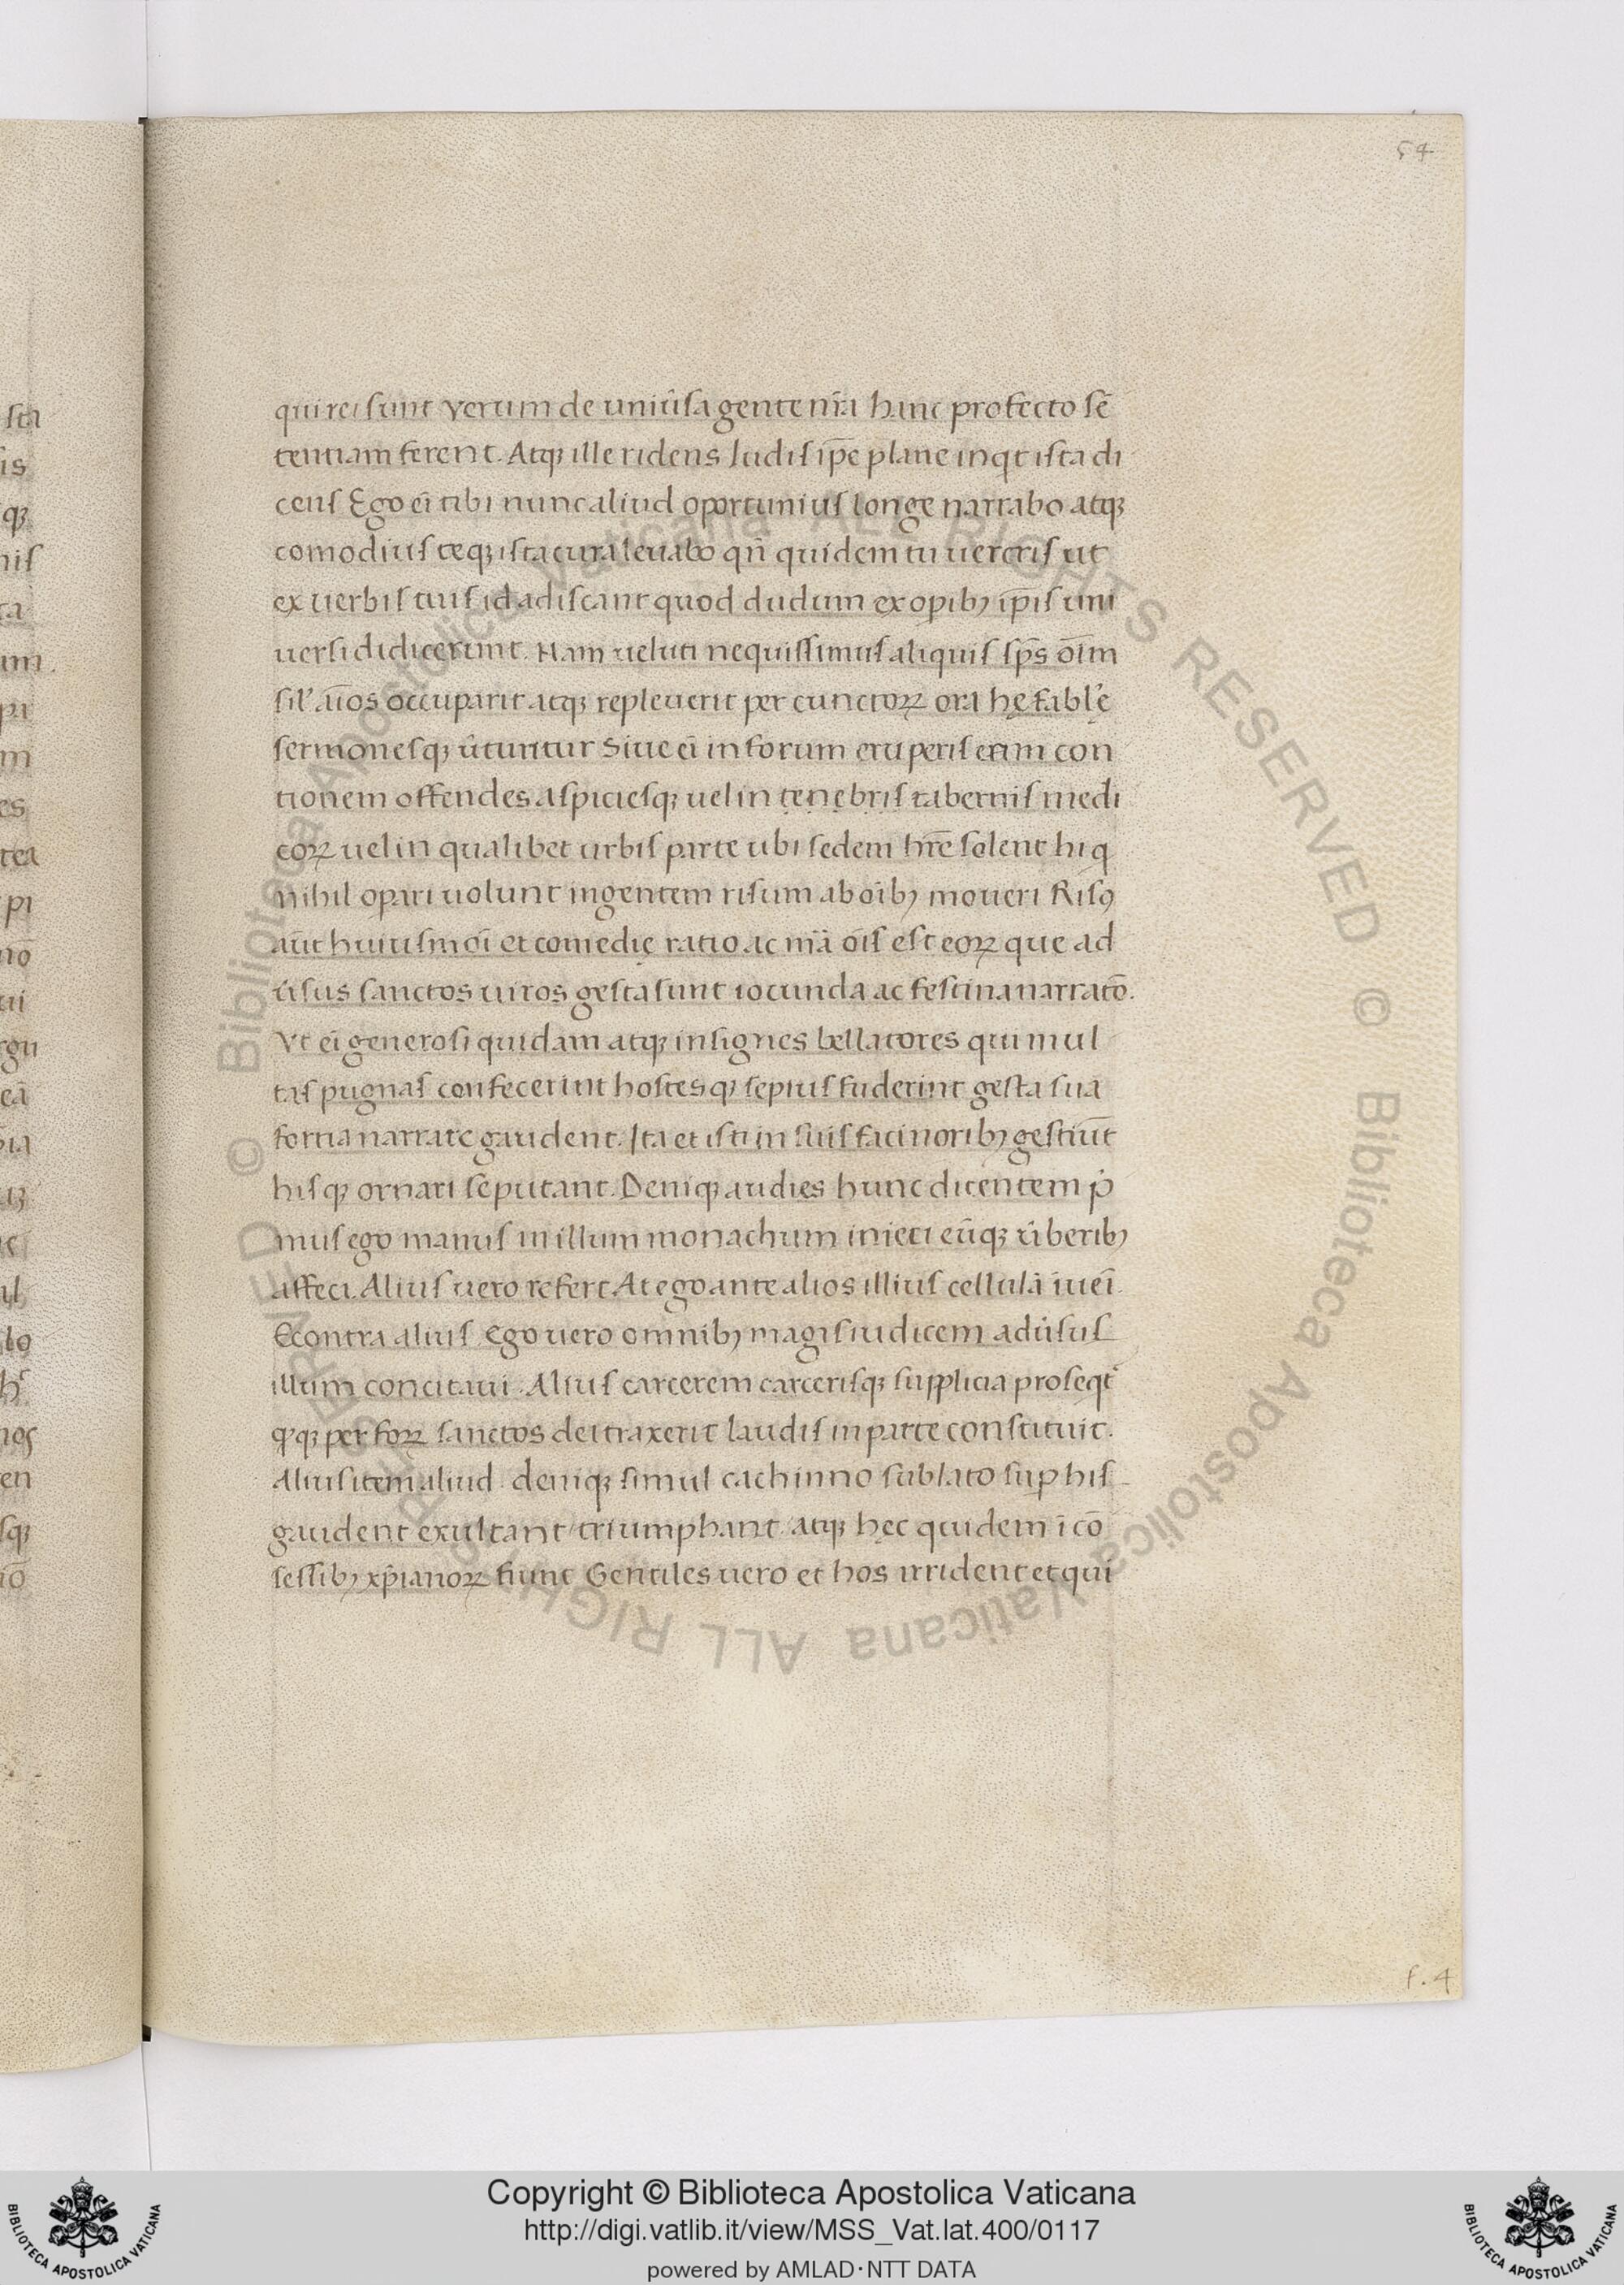 54
qui rei sunt verum de uniũſa gente nr̃a hinc profecto sẽ
tentiam ferent. Atqȝ ille ridens ludiſ ip̃e plane inqt iſta di
cenſ Ego ei̅ tibi nunc aliud oportuniuſ longe narrabo atqȝ
comodiuſ teqȝ iſta cura leuabo qn̅ quidem tu uereriſ ut
ex uerbiſ tuiſ id adiſcant quod dudum ex opibȝ ip̅iſ uni
uerſi didicerunt. Nam ueluti nequiſſimuſ aliquiſ ſp̅s oi̅m
ſil' ai̅os occuparit atqȝ repleuerit per cunctoꝝ ora hę fabl'ę
ſermoneſqȝ ũturitur Siue ei̅ in forum eruperiſ etim con
tionem offendes aſpicieſqȝ uel in tenebriſ taberniſ medi
coꝝ uel in qualibet urbiſ parte ubi ſedem hr̅e ſolent hi q
nihil opari uolunt ingentem riſum ab oi̅bȝ moueri Riſꝯ
aũt huiuſmoi̅ et comedię ratio ac mã oi̅ſ eſt eoꝝ que ad
ũſus ſanctos uiros geſta ſunt iocunda ac feſtina narratõ.
Vt ei̅ generoſi quidam atqȝ inſignes bellatores qui mul
taſ pugnaſ confecerint hoſtesqȝ ſepiuſ fuderint geſta ſua
fortia narrare gaudent. Ita et iſti in ſuiſ facinoribȝ geſtiũt
hiſqȝ ornari ſe putant. Deniqȝ audies hunc dicentem p̓
muſ ego manuſ in illum monachum inieci eũqȝ ũberibȝ
affeci. Aliuſ uero refert At ego ante alios illiuſ cellulã iuei̅.
Econtra aliuſ. Ego uero omnibȝ magiſ iudicem adũſuſ
illum concitaui. Aliuſ carcerem carceriſqȝ ſupplicia proſeqt̓
q̓qȝ per foꝝ ſanctos dei traxerit laudiſ in parte conſtituit.
Aliuſ item aliud. deniqȝ ſimul cachinno ſublato ſuꝑ hiſ
gaudent exultant triumphant. atqȝ hęc quidem ĩ cõ
ſeſſibȝ xp̅ianoꝝ fiunt Gentiles uero et hos irrident et qui
f. 4
© Biblioteca Apostolica Vaticana ALL RIGHTS RESERVED © Biblioteca Apostolica Vaticana ALL RIGHTS RESERVED
Copyright © Biblioteca Apostolica Vaticana
http://digi.vatlib.it/view/MSS_Vat.lat.400/0117
powered by AMLAD·NTT DATA
BIBLIOTECA APOSTOLICA VATICANA
BIBLIOTECA APOSTOLICA VATICANA